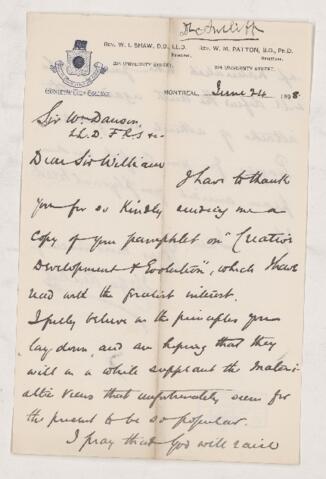 Rev. W. I. SHAW, D.D., LL.D. Rev. W. M. PATTON, B.D., Ph.D.
228 UNIVERSITY STREET.
MONTREAL, June 24 1898
Sir Wm Dawson
LL.D. F.R.S &c
Dear Sir William
I have to thank
you for so kindly sending me a
copy of your pamphlet on "Creative
Development & Evolution", which I have
read with the greatest interest.
I fully believe in the principles you
lay down and am hoping that they
will in a while supplant the materi-
alistic views that unfortunately seem for
the present to be so popular.
I pray that God will raise